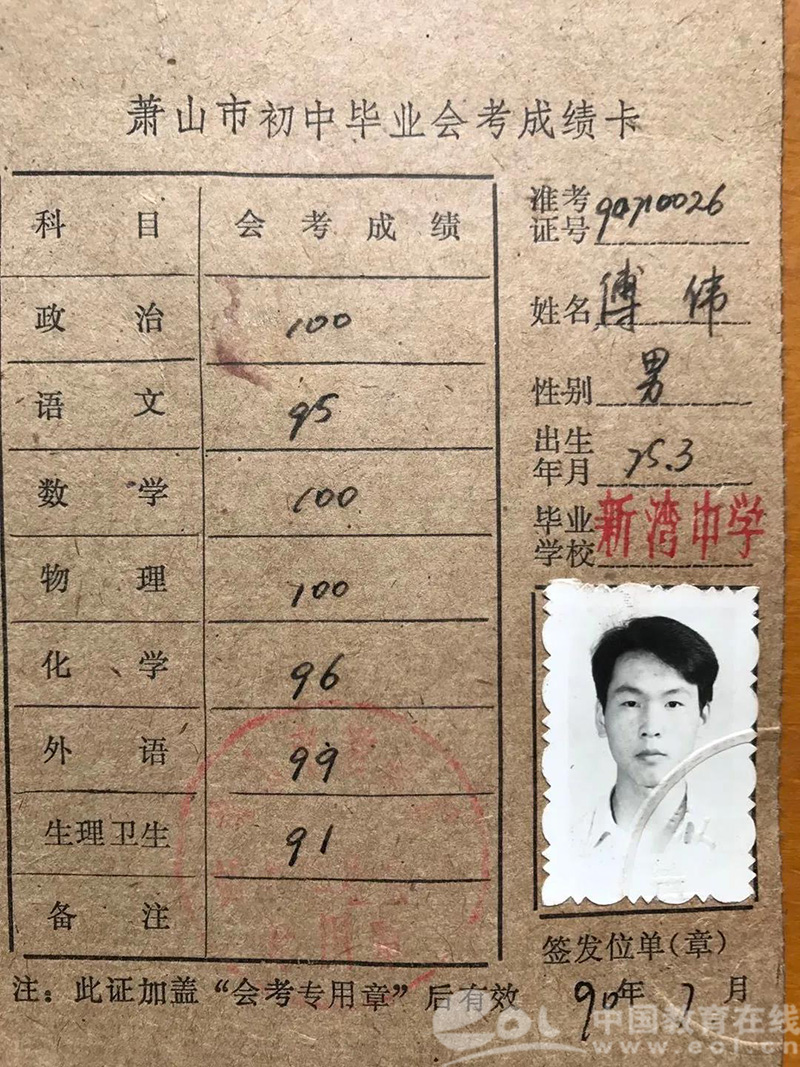 萧山市初中毕业会考成绩卡
科目 会考成绩
政治 100
语文 95
数学 100
物理 100
化学 96
外语 99
生理卫生 91
备注
注：此证加盖“会考专用章”后有效
准考证号 90710026
姓名 傅伟
性别 男
出生年月 75.3
毕业学校 新湾中学
签发位单(章)
90年7月
eol 中国教育在线
www.eol.cn